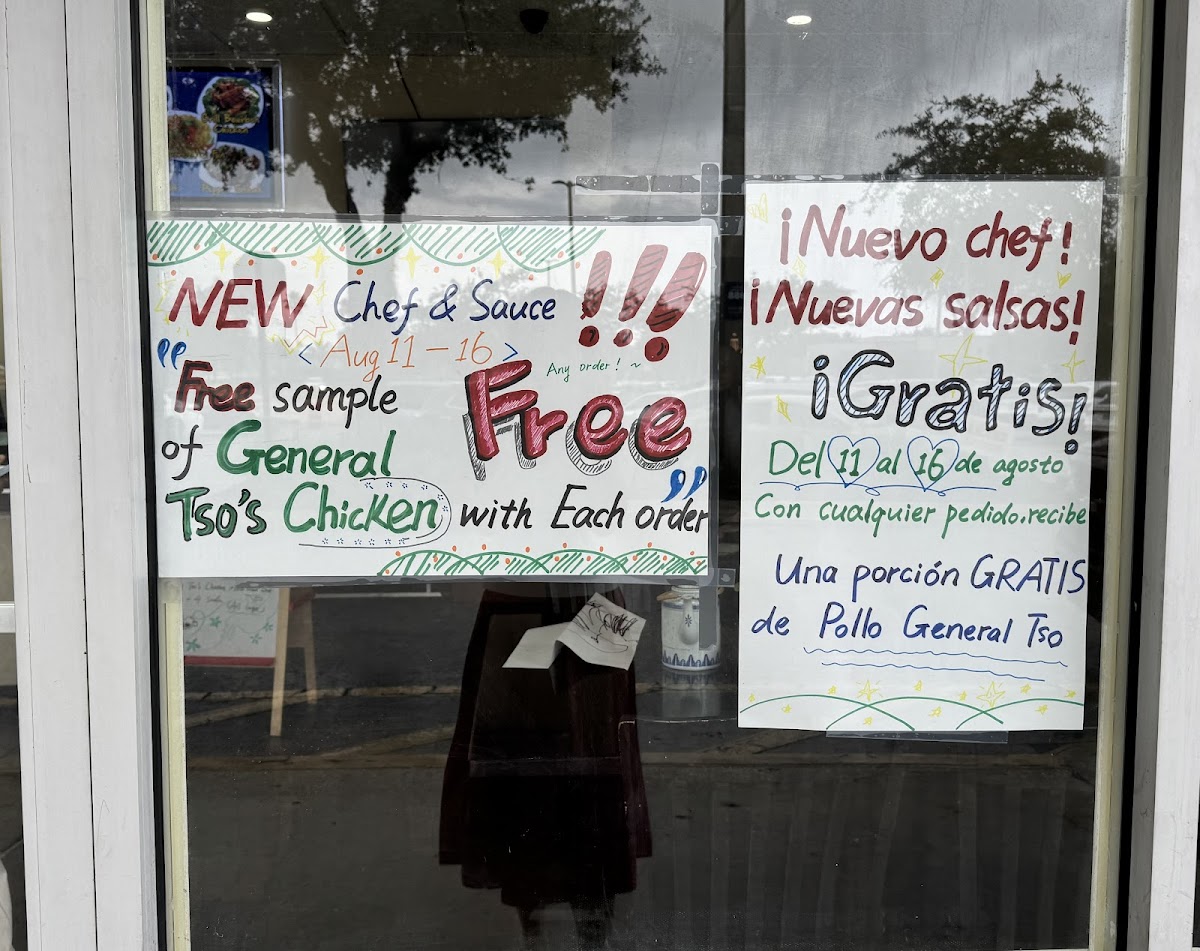 NEW Chef & Sauce !!!
< Aug 11 - 16 >
Any order! ~
"Free sample Free
of General
Tso's Chicken with Each order"
¡Nuevo chef!
¡Nuevas salsas!
¡Gratis!
Del 11 al 16 de agosto
Con cualquier pedido.recibe
Una porción GRATIS
de Pollo General Tso